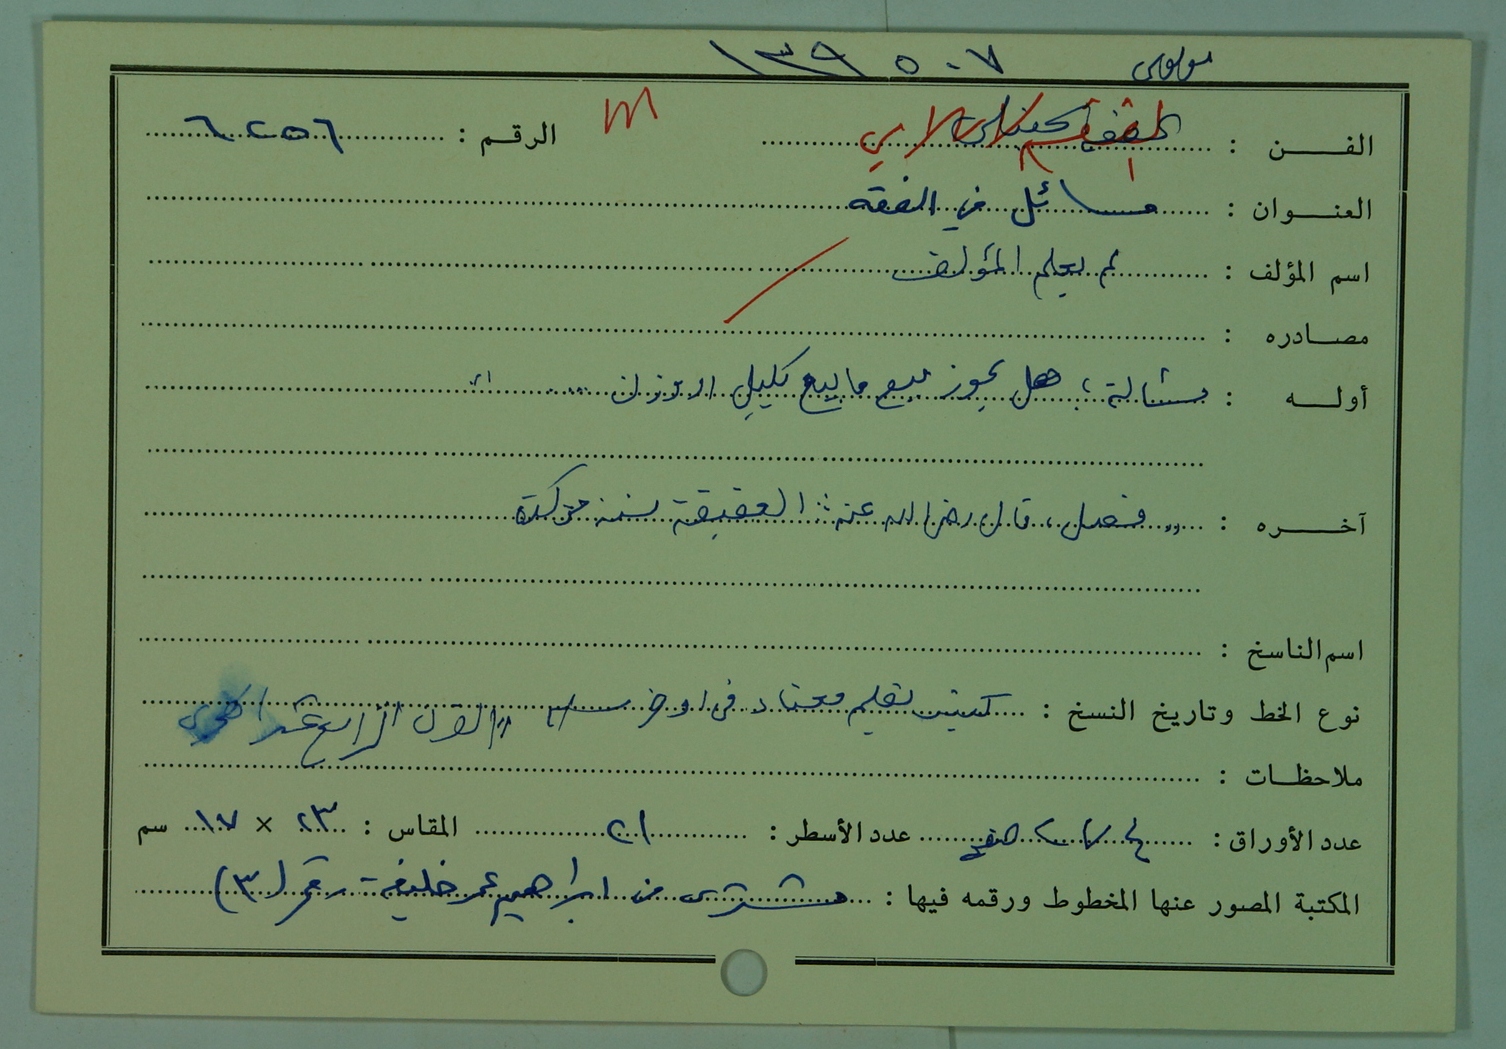 ١٣٩٥٠٧
الفن : الرقم : ٦٢٥٦
العنوان : مسائل في الفقه
اسم المؤلف : لم يعلم المؤلف
مصادره :
أوله : مسئالة، هل يجوز بيع ما يبيع
آخره : .. فصل، قال رضي الله عنه: العقيقة سنة مؤكدة
اسم الناسخ :
نوع الخط وتاريخ النسخ : كتبت بقلم معتاد في اوخر القرن الرابع عشر الهجري
ملاحظات :
عدد الأوراق : عدد الأسطر : ٢١ المقاس : ٢٣ × ١٧ سم
المكتبة المصور عنها المخطوط ورقمه فيها : مشترى من ابراهيم عمر خليفة رقم (٣)